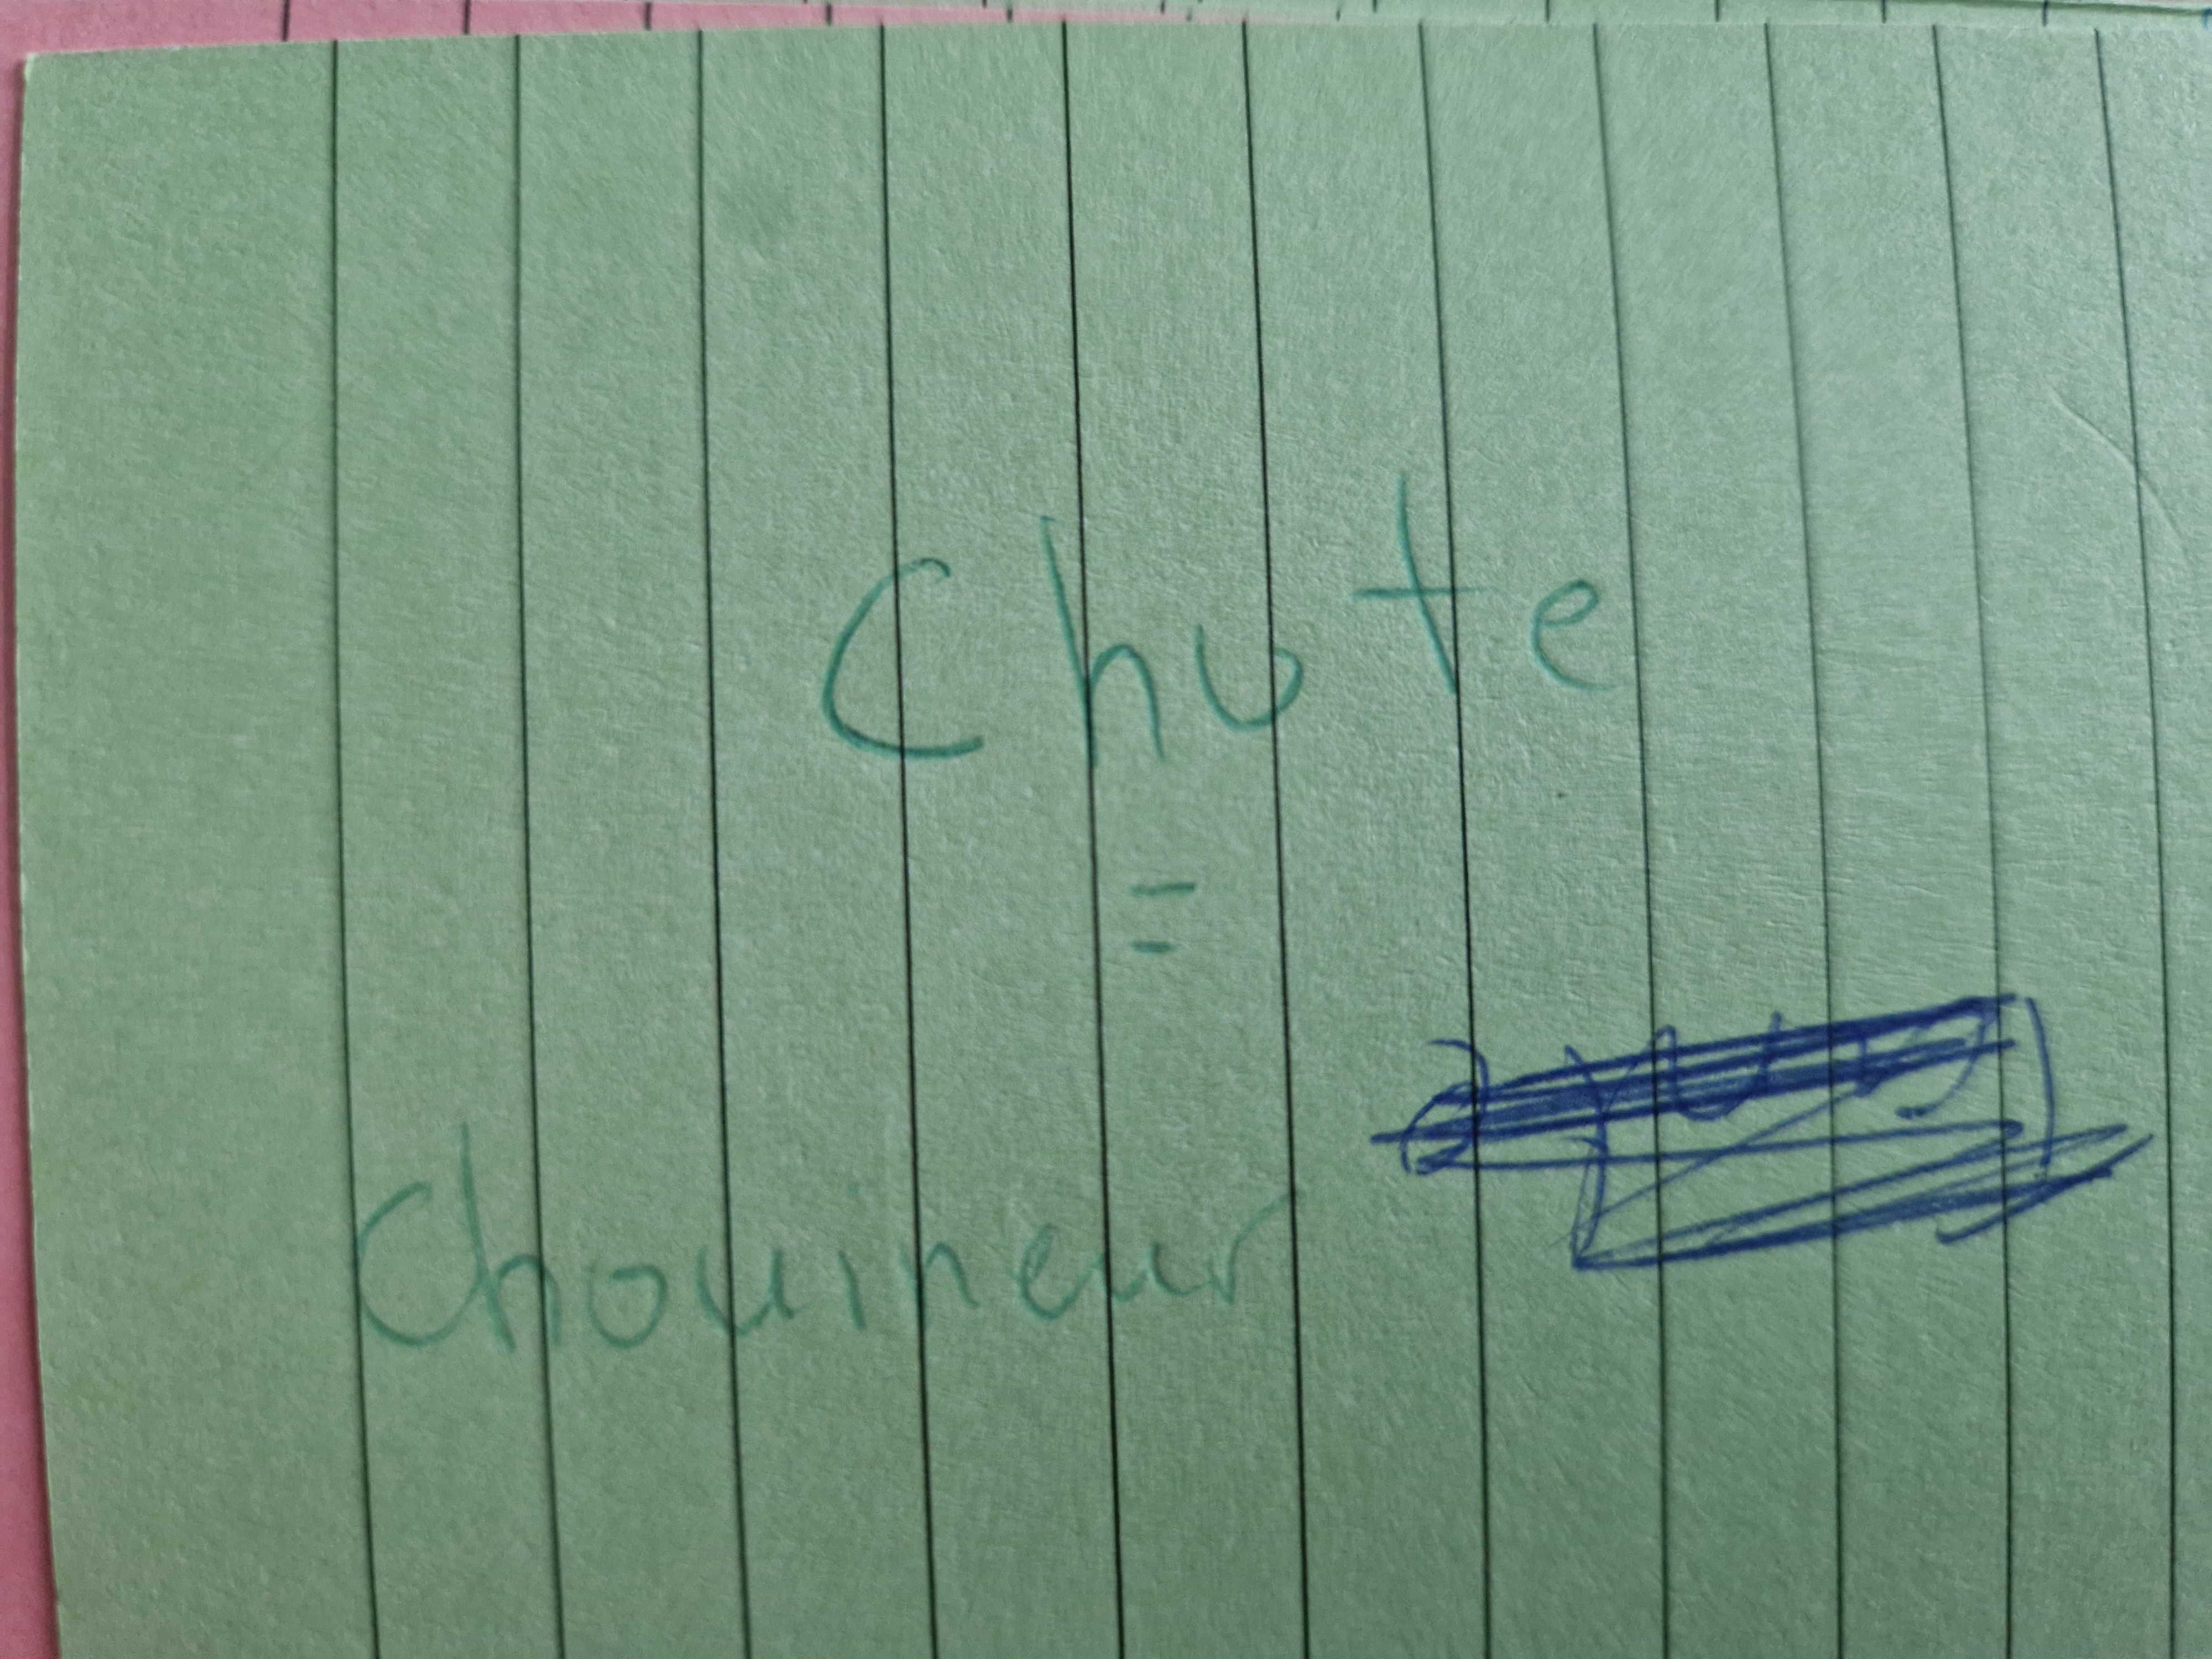 Chute
=
Chouineur